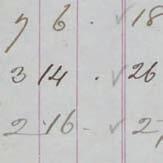 7 6 . ✓ 18
3 14 . ✓ 26
2 16 . ✓ 2